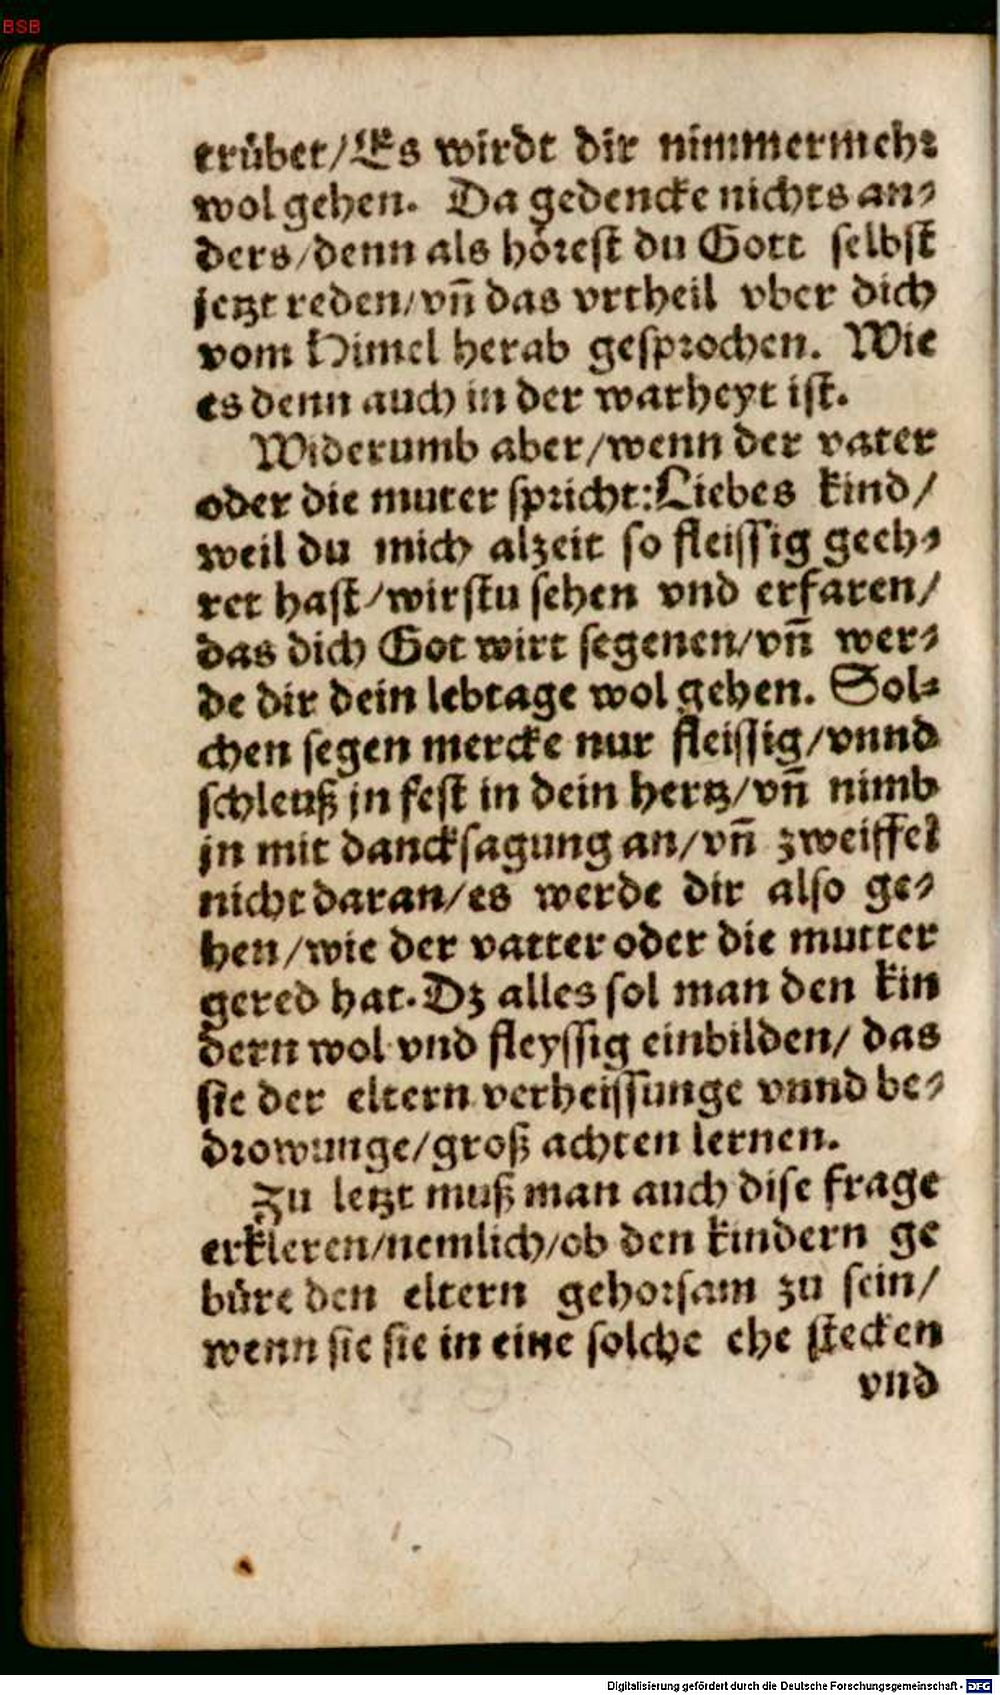 BSB
trübet/Es wirdt dir nimmermehr
wol gehen. Da gedencke nichts an⸗
ders/denn als hörest du Gott selbst
jetzt reden/vñ das vrtheil vber dich
vom Himel herab gesprochen. Wie
es denn auch in der warheyt ist.
Widerumb aber/wenn der vater
oder die muter spricht: Liebes kind/
weil du mich alzeit so fleissig geeh⸗
ret hast/wirstu sehen vnd erfaren/
das dich Got wirt segenen/vñ wer⸗
de dir dein lebtage wol gehen. Sol⸗
chen segen mercke nur fleissig/vnnd
schleuß jn fest in dein hertz/vñ nimb
jn mit dancksagung an/vñ zweiffel
nicht daran/es werde dir also ge⸗
hen/wie der vatter oder die mutter
gered hat. Dz alles sol man den kin
dern wol vnd fleyssig einbilden/ das
sie der eltern verheissunge vnnd be⸗
drowunge/groß achten lernen.
Zu letzt muß man auch dise frage
erkleren/nemlich/ob den kindern ge
büre den eltern gehorsam zu sein/
wenn sie sie in eine solche ehe stecken
vnd
Digitalisierung gefördert durch die Deutsche Forschungsgemeinschaft - DFG